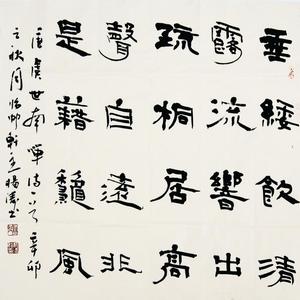 垂緌飲清
露流響出
疏桐居高
聲自遠非
是藉龝風
唐虞世南蟬詩一首辛卯
之秋月